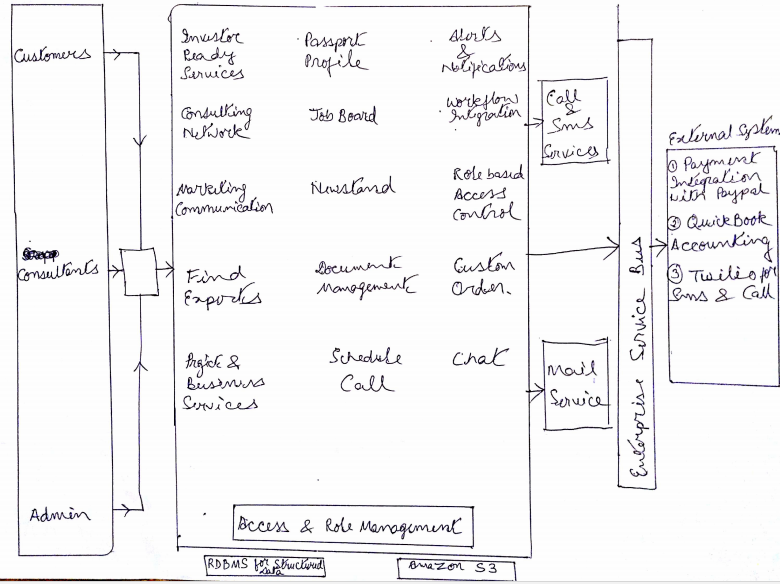 Customers
Consultants
Admin
Investor
Ready
Services
Passport
Profile
Alerts
&
Notifications
Consulting
Network
Job Board
Workflow
Integration
Marketing
Communication
Newstand
Role based
Access
Control
Find
Experts
Document
Management
Custom
Order.
Project &
Business
Services
Schedule
Call
Chat
Access & Role Management
RDBMS for Structured
Data
Amazon S3
Call
&
Sms
Services
Mail
Service
Enterprise Service Bus
External System
① Payment
Integration
with Paypal
② QuickBook
Accounting
③ Twilio for
Sms & Call